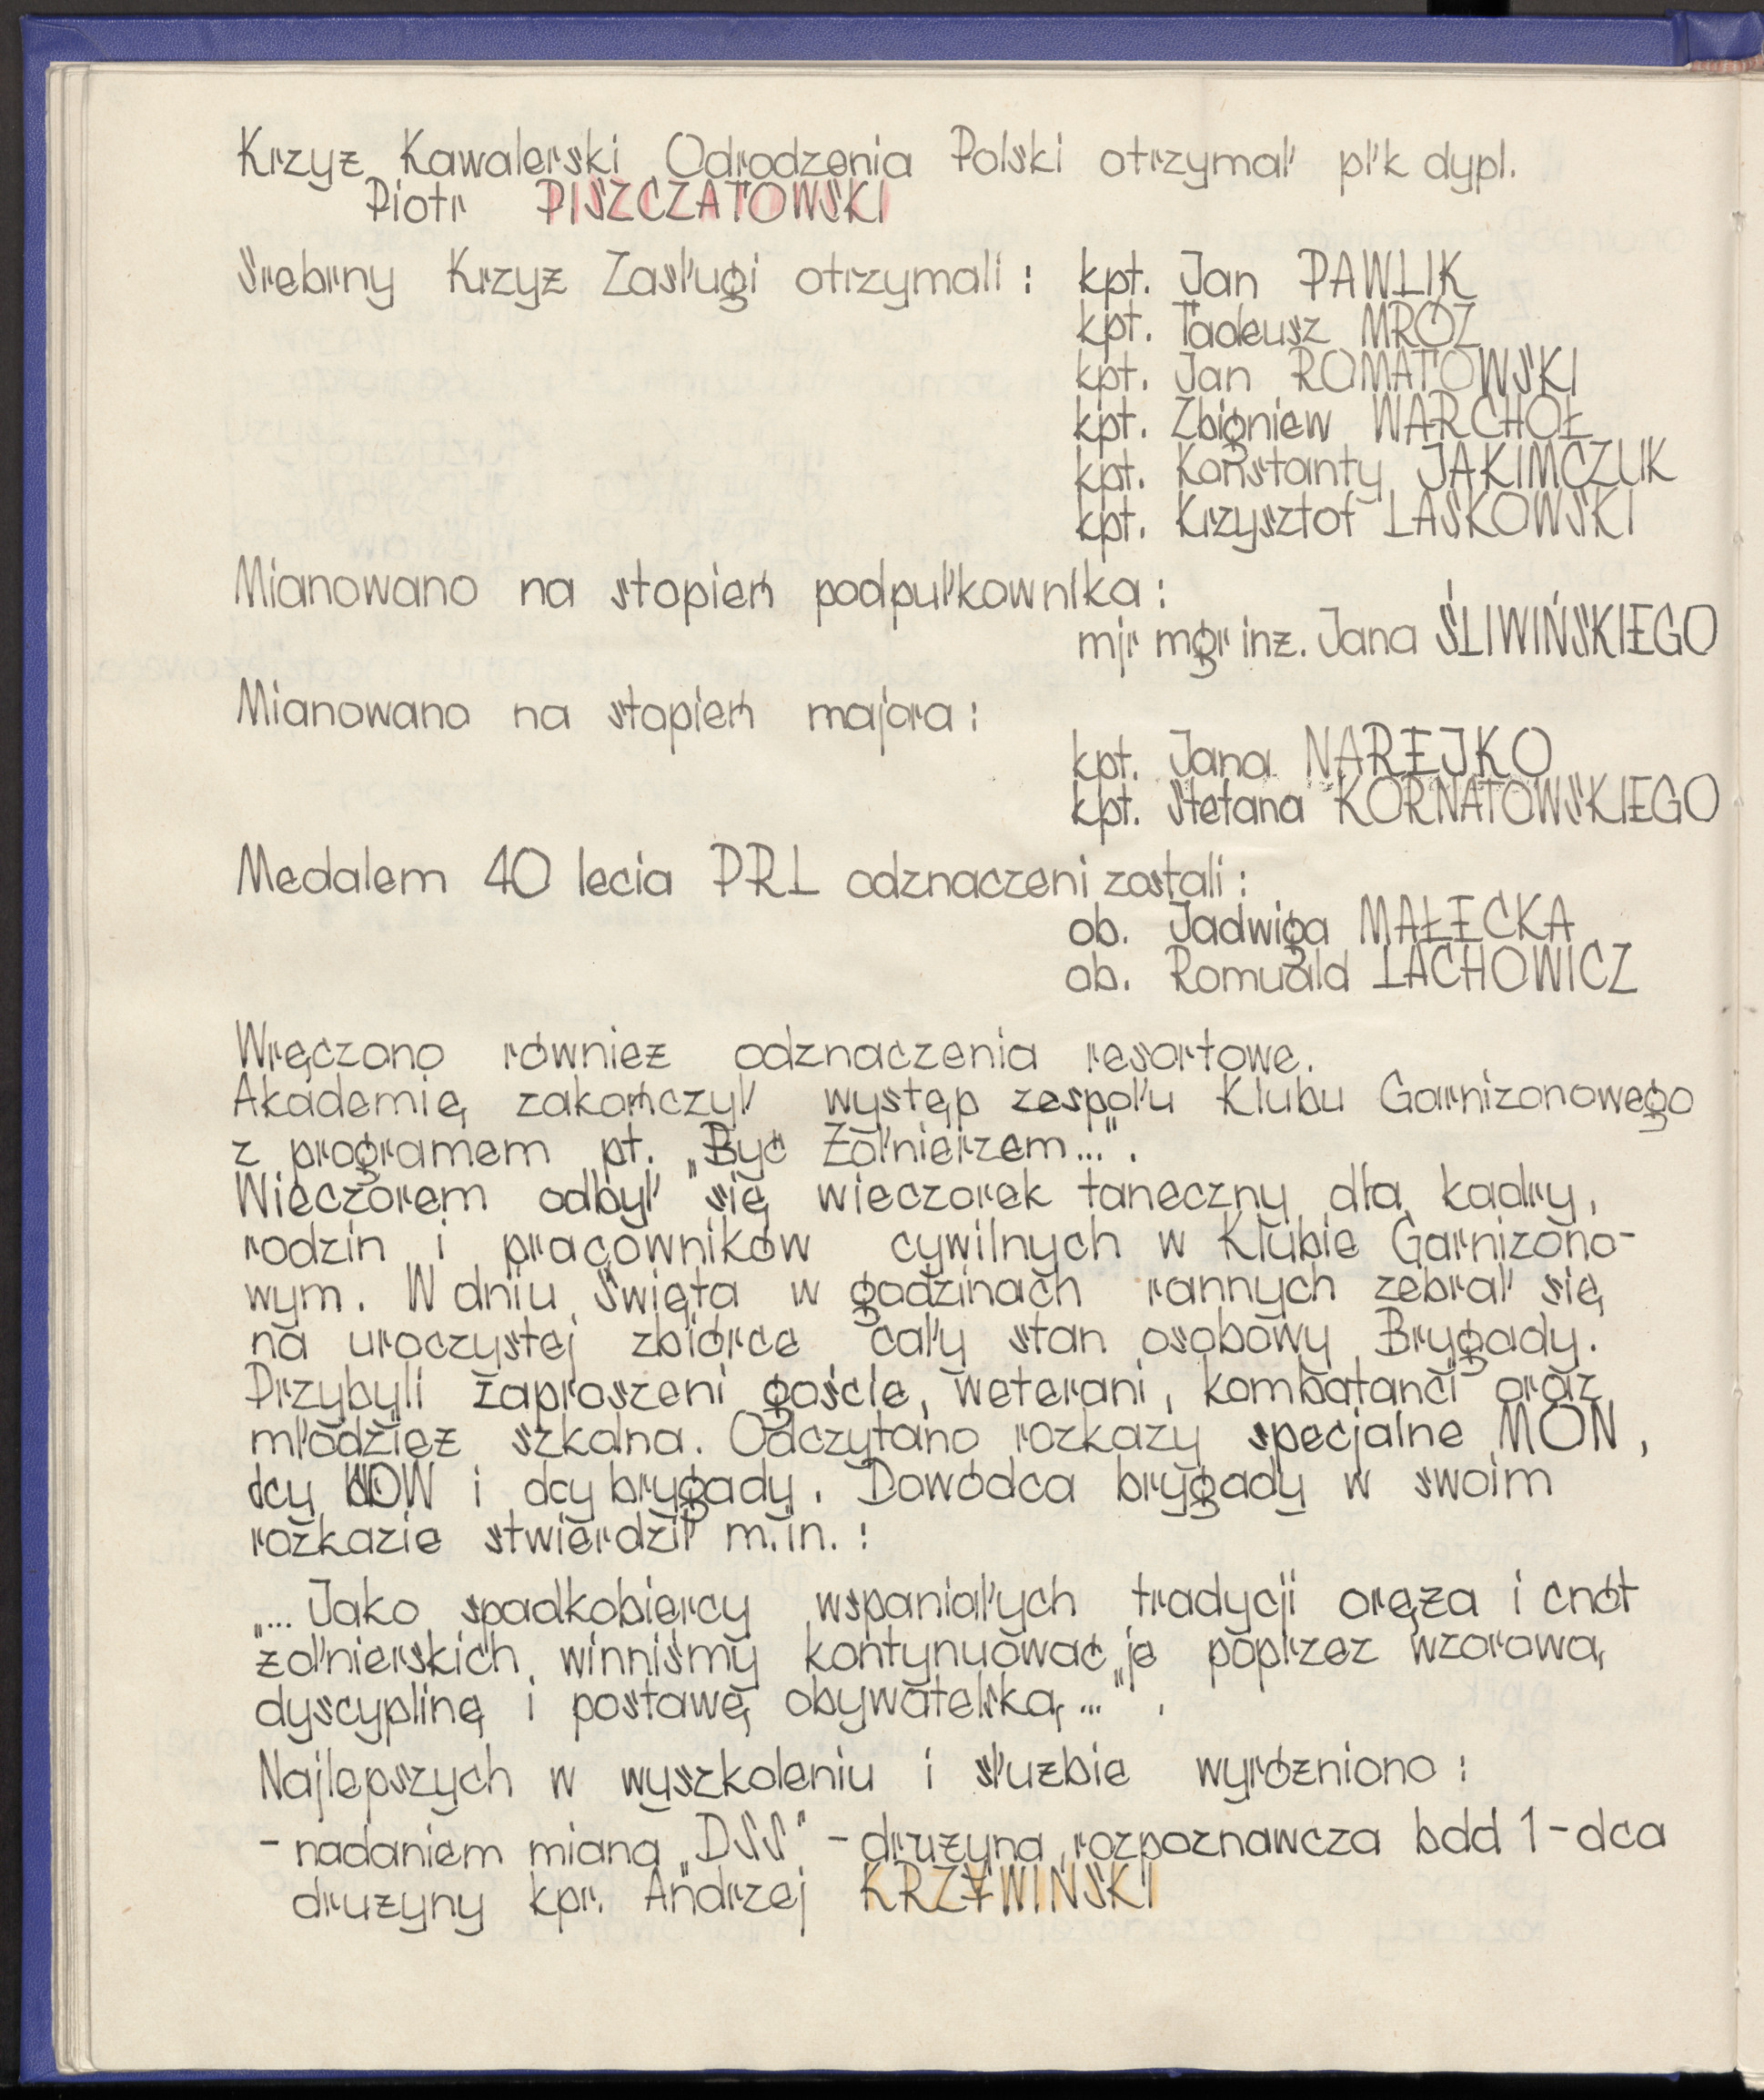 Krzyż Kawalerski Odrodzenia Polski otrzymał płk dypl.
Piotr PISZCZATOWSKI
Srebrny Krzyż Zasługi otrzymali: kpt. Jan PAWLIK
kpt. Tadeusz MRÓZ
kpt. Jan ROMATOWSKI
kpt. Zbigniew WARCHOŁ
kpt. Konstanty JAKIMCZUK
kpt. Krzysztof LASKOWSKI
Mianowano na stopień podpułkownika:
mjr mgr inż. Jana ŚLIWIŃSKIEGO
Mianowano na stopień majora:
kpt. Jana NAREJKO
kpt. Stefana KORNATOWSKIEGO
Medalem 40 lecia PRL odznaczeni zostali:
ob. Jadwiga MAŁECKA
ob. Romuald LACHOWICZ
Wręczono również odznaczenia resortowe.
Akademię zakończył występ zespołu Klubu Garnizonowego
z programem pt. „Być Żołnierzem...".
Wieczorem odbył się wieczorek taneczny dla kadry,
rodzin i pracowników cywilnych w Klubie Garnizono-
wym. W dniu Święta w godzinach rannych zebrał się
na uroczystej zbiórce cały stan osobowy Brygady.
Przybyli zaproszeni goście, weterani, kombatanci oraz
młodzież szkolna. Odczytano rozkazy specjalne MON,
dcy WOW i dcy brygady. Dowódca brygady w swoim
rozkazie stwierdził m.in.:
„... Jako spadkobiercy wspaniałych tradycji oręża i cnót
żołnierskich winniśmy kontynuować je poprzez wzorową
dyscyplinę i postawę obywatelską..." .
Najlepszych w wyszkoleniu i służbie wyróżniono:
- nadaniem miana „DSS" - drużyna rozpoznawcza bdd 1-dca
drużyny kpr. Andrzej KRZYWIŃSKI